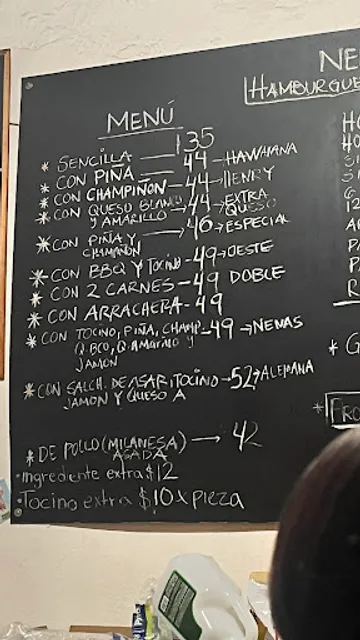 NE
HAMBURGUE
MENÚ
* SENCILLA — 135
* CON PIÑA — 44 - HAWAIANA
* CON CHAMPIÑON - 44 → HENRY
* CON QUESO BLANCO Y AMARILLO → 44 → EXTRA QUESO
* CON PIÑA Y CHAMPIÑON → 46 → ESPECIAL
* CON BBQ Y TOCINO - 49 → OESTE
* CON 2 CARNES - 49 DOBLE
* CON ARRACHERA - 49
* CON TOCINO, PIÑA, CHAMP - 49 → NENAS
Q. BCO, Q. AMARILLO Y
JAMON
* CON SALCH. DE ASAR, TOCINO → 52 → ALEMANA
JAMON Y QUESO A
* DE POLLO (MILANESA) → 42
ASADA
· Ingrediente extra $12
· Tocino extra $10 x pieza